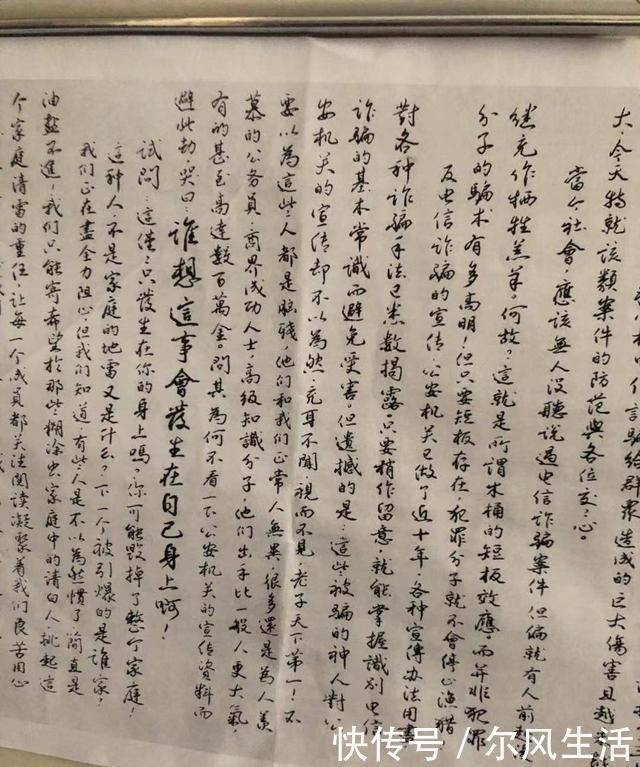 信騙給群衆造成的巨大傷害且越
大,今天特就该類案件的防范與各位交心。
當今社會,應該無人没聽説過电信诈骗案件,但偏就有人前
继充作牺牲羔羊。何故?這就是所謂木桶的短板效應,而并非犯罪
分子的骗术有多高明!但只要短板存在,犯罪分子就不會停止渔猎。
反电信诈骗的宣传,公安机关已做了近十年,各种宣傳办法用盡,
對各种诈骗手法已悉數揭露。只要稍作留意,就能掌握識别电信
诈骗的基本常識而避免受害。但遺撼的是:這些被骗的神人對公
安机关的宣传却不以為然,充耳不聞,視而不見,老子天下第一!不
要以為這些人都是脑残,他们和我们正常人無異,很多還是為人羡
慕的公务員,商界成功人士,高级知識分子,他们出手比一般人更大氣,
有的甚至高達数百萬金。問其為何不看一下公安机关的宣传資料而
避此劫,哭曰:誰想這事會發生在自己身上啊!
試問:這僅只發生在你的身上嗎?你可能毁掉了整个家庭!
這种人,不是家庭的地雷又是什么?下一个被引爆的是誰家!
我们正在盡全力阻止,但我们知道有些人是不以為然慣了,简直是
油盐不進!我们只能寄希望於那些糊涂虫家庭中的清白人,挑起這
个家庭清雷的重任,让每一个成員都关注阅读凝聚着我们良苦用心
快传号/尔风生活